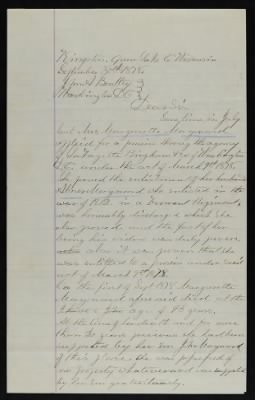 Kingston, Green Lake Co Wisconsin
September 30th 1878.
Wm. A. Bentley
Washington D.C.
Dear Sir
Some time in July
last Mrs Marguerite Maynard
applied for a pension through the agency
of &Co of Washington
D.C. under the act of March 9th 1878.
She proved the enlistment of her husband
Maynard. He enlisted in the
war of 1812. in a Vermont Regiment,
was honorably discharged which she
also proved and the fact of her
being his widow was duly proven
also. It was proven that she
was entitled to a pension under said
act of March 9th 1878.
On the first of Sept 1878 Marguerite
Maynard aforesaid died at the
age of 83 years.
At the time of her death and for more
than 20 years previous she had been
supported by her son John Maynard
of this place. She was possessed of
no property whatsoever and was supported
by her son gratuitously.